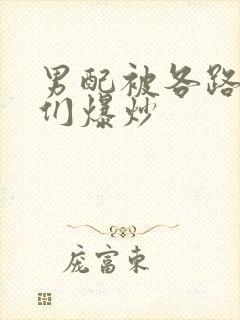 男配被各路
们爆炒
庞富东